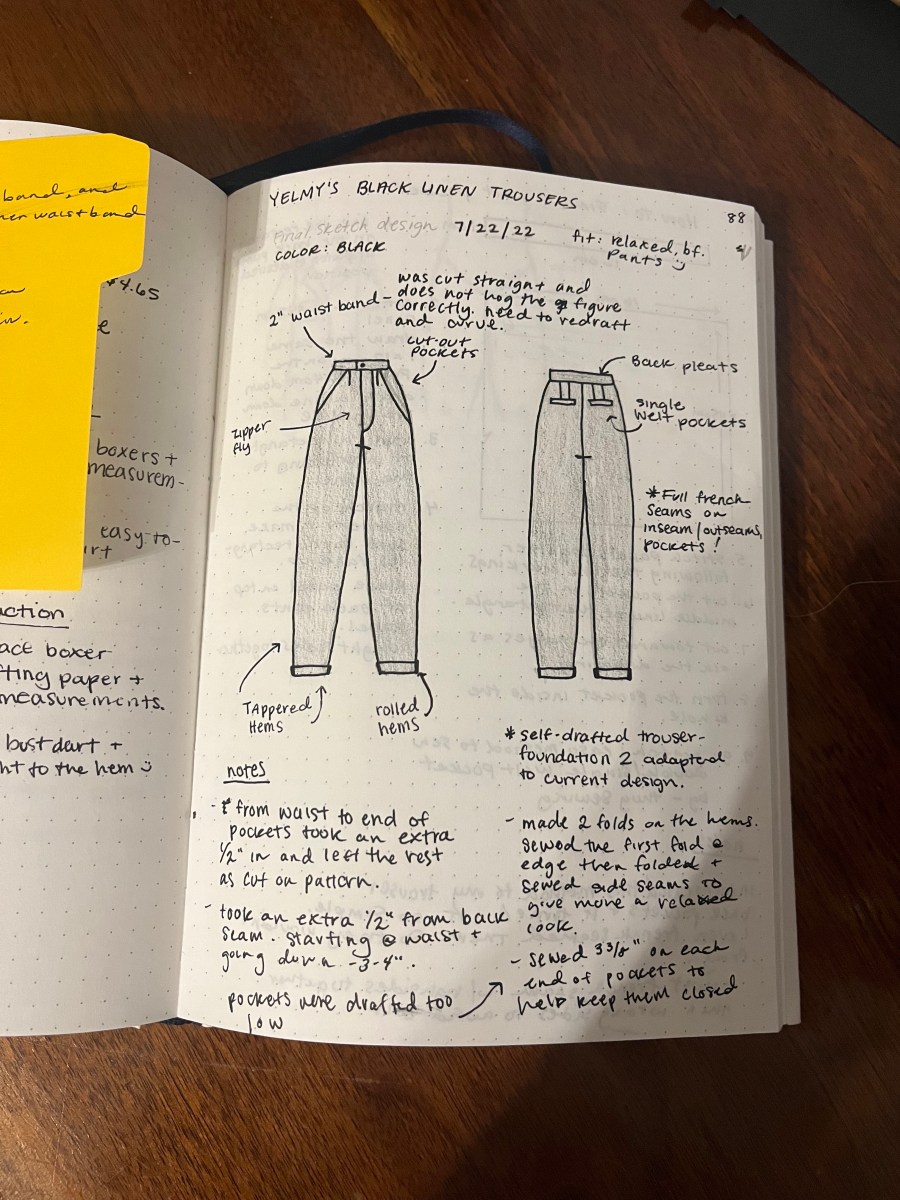 band, and
waistband
$4.65
e
boxers +
measurem-
easy-to-
action
ace boxer
fting paper +
measurements.
bust dart +
ht to the hem
YELMY'S BLACK LINEN TROUSERS
88
final sketch design 7/22/22
COLOR: BLACK
fit: relaxed, bf.
pants
2" waist band – was cut straight and
does not hog the figure
correctly. need to redraft
and curve.
cut-out
pockets
zipper
fly
Back pleats
single
welt pockets
*Full french
seams on
inseam/outseams,
pockets!
Tappered
Hems
rolled
hems
notes
- from waist to end of
pockets took an extra
1/2" in and left the rest
as cut on pattern.
- took an extra 1/2" from back
seam. starting @ waist +
going down -3-4".
pockets were drafted too
low
* self-drafted trouser-
foundation 2 adapted
to current design.
- made 2 folds on the hems.
sewed the first fold @
edge then folded +
sewed side seams to
give more a relaxed
look.
- sewed 3 3/8" on each
end of pockets to
help keep them closed